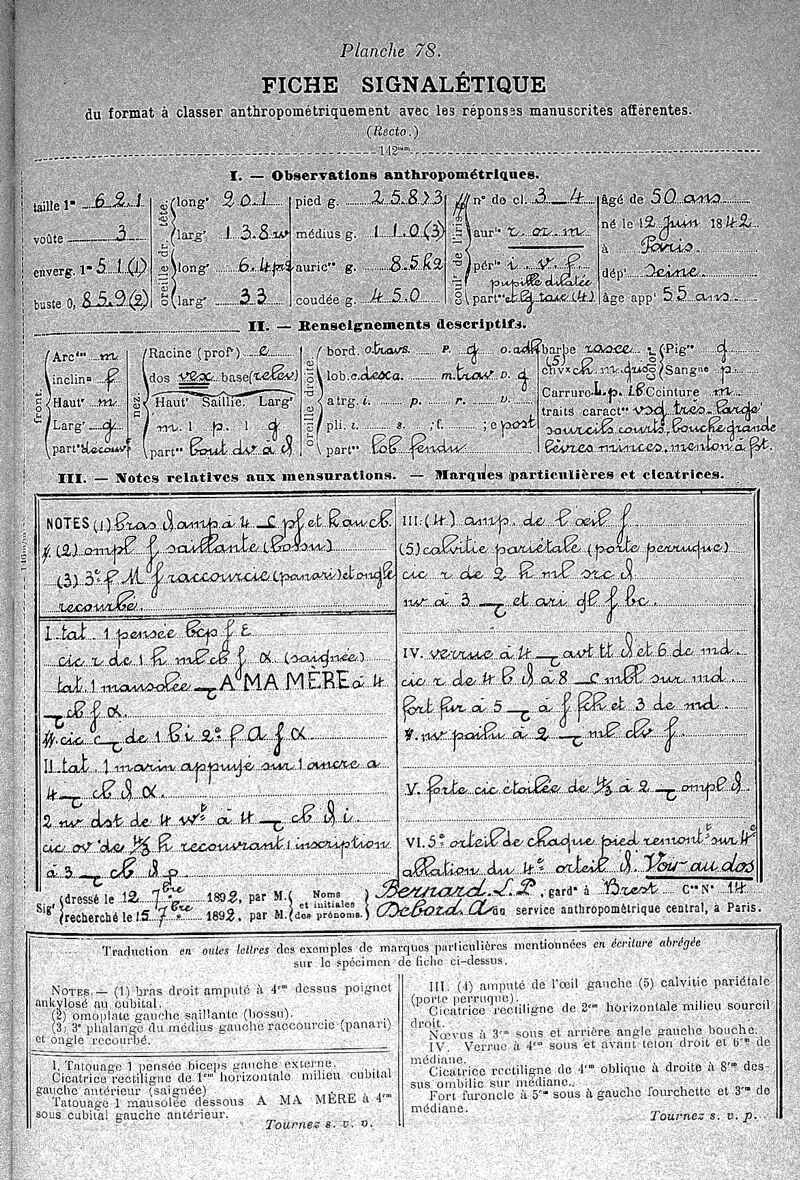 Planche 78.
FICHE SIGNALÉTIQUE
du format à classer anthropométriquement avec les réponses manuscrites afférentes.
(Recto.)
142mm
I. — Observations anthropométriques.
taille 1m 62.1 long' 20.1 pied g. 25.8 n° de cl. 3_4 âgé de 50 ans
voûte 3 larg' 13.8 médius g. 11.0(3) aurle r. or. m né le 12 Juin 1842
oreille dr. tête. coulr de l'iris à Paris
enverg. 1m 51(1) long' 6.4 auricre g. 8.5 périe i. v. f. dépt Seine
pupille dilatée
buste 0, 85.9(2) larg' 33 coudée g. 45.0 partés et lg taie (4) âge appt 55 ans.
II. — Renseignements descriptifs.
Arcde m Racine (profr) e bord. o travs. p. g o. adh barbe rasée Pigre g
inclinn f dos vex base (relev) lob. c. desca. m. trav. D. g chvx ch. m. Sangne p
Hautr m Hautr Saillie. Largr a trg. i. p. r. v. Carrure L.p. 16 Ceinture m
Largr g m. l p. l g pli. i. s. ; f. ; e post traits caractes très large
sourcils courts, bouche grande
partés découvt partés bout dv à d partés lob fendu lèvres minces, menton à ft.
front. nez. oreille droite.
III. — Notes relatives aux mensurations. — Marques particulières et cicatrices.
NOTES (1) bras d amp à 4 pf et h au cb.
(2) ompl f saillante (bossu)
(3) 3e f M f raccourcie (panari) et ongle
recourbé.
I. tat. 1 pensée bcp f ε
cic r de 1 h ml cb f α (saignée)
tat. 1 mausolée A MA MÈRE à 4
cb f α.
cic de 1 b i 2e f A f α.
II. tat. 1 marin appuyé sur 1 ancre a
4 cb d α.
2 nv dst de 4 à 4 cb d i.
cic ov de h recouvrant 1 inscription
à 3 cb d p
III. (4) amp. de l'œil f
(5) calvitie pariétale (porte perruque)
cic r de 2 h ml src d
nv à 3 et ari gl f bc.
IV. verrue à 4 avt tt d et 6 de md.
cic r de 4 b d à 8 mbl sur md.
fort fur à 5 à f fch et 3 de md.
nv poilu à 2 ml clv f.
V. forte cic étoilée de à 2 ompl d.
VI. 5e orteil de chaque pied remontt sur 4e
ablation du 4e orteil d. Voir au dos
Sigt dressé le 12 7bre 1892, par M. Noms et initiales des prénoms. Bernard. L. P, garde à Brest Cne N° 14
recherché le 15 7bre 1892, par M. Debord. A au service anthropométrique central, à Paris.
Traduction en toutes lettres des exemples de marques particulières mentionnées en écriture abrégée
sur le spécimen de fiche ci-dessus.
NOTES. — (1) bras droit amputé à 4cm dessus poignet
ankylosé au cubital.
(2) omoplate gauche saillante (bossu).
(3) 3e phalange du médius gauche raccourcie (panari)
et ongle recourbé.
I. Tatouage 1 pensée biceps gauche externe.
Cicatrice rectiligne de 1cm horizontale milieu cubital
gauche antérieur (saignée)
Tatouage 1 mausolée dessous A MA MÈRE à 4cm
sous cubital gauche antérieur.
Tournez s. v. p.
III. (4) amputé de l'œil gauche (5) calvitie pariétale
(porte perruque).
Cicatrice rectiligne de 2cm horizontale milieu sourcil
droit.
Nœvus à 3cm sous et arrière angle gauche bouche.
IV. Verrue à 4cm sous et avant teton droit et 6cm de
médiane.
Cicatrice rectiligne de 4cm oblique à droite à 8cm des-
sus ombilic sur médiane.
Fort furoncle à 5cm sous à gauche fourchette et 3cm de
médiane.
Tournez s. v. p.